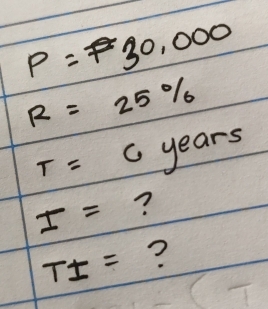 P = ₱30,000
R = 25%
T = 6 years
I = ?
TI = ?